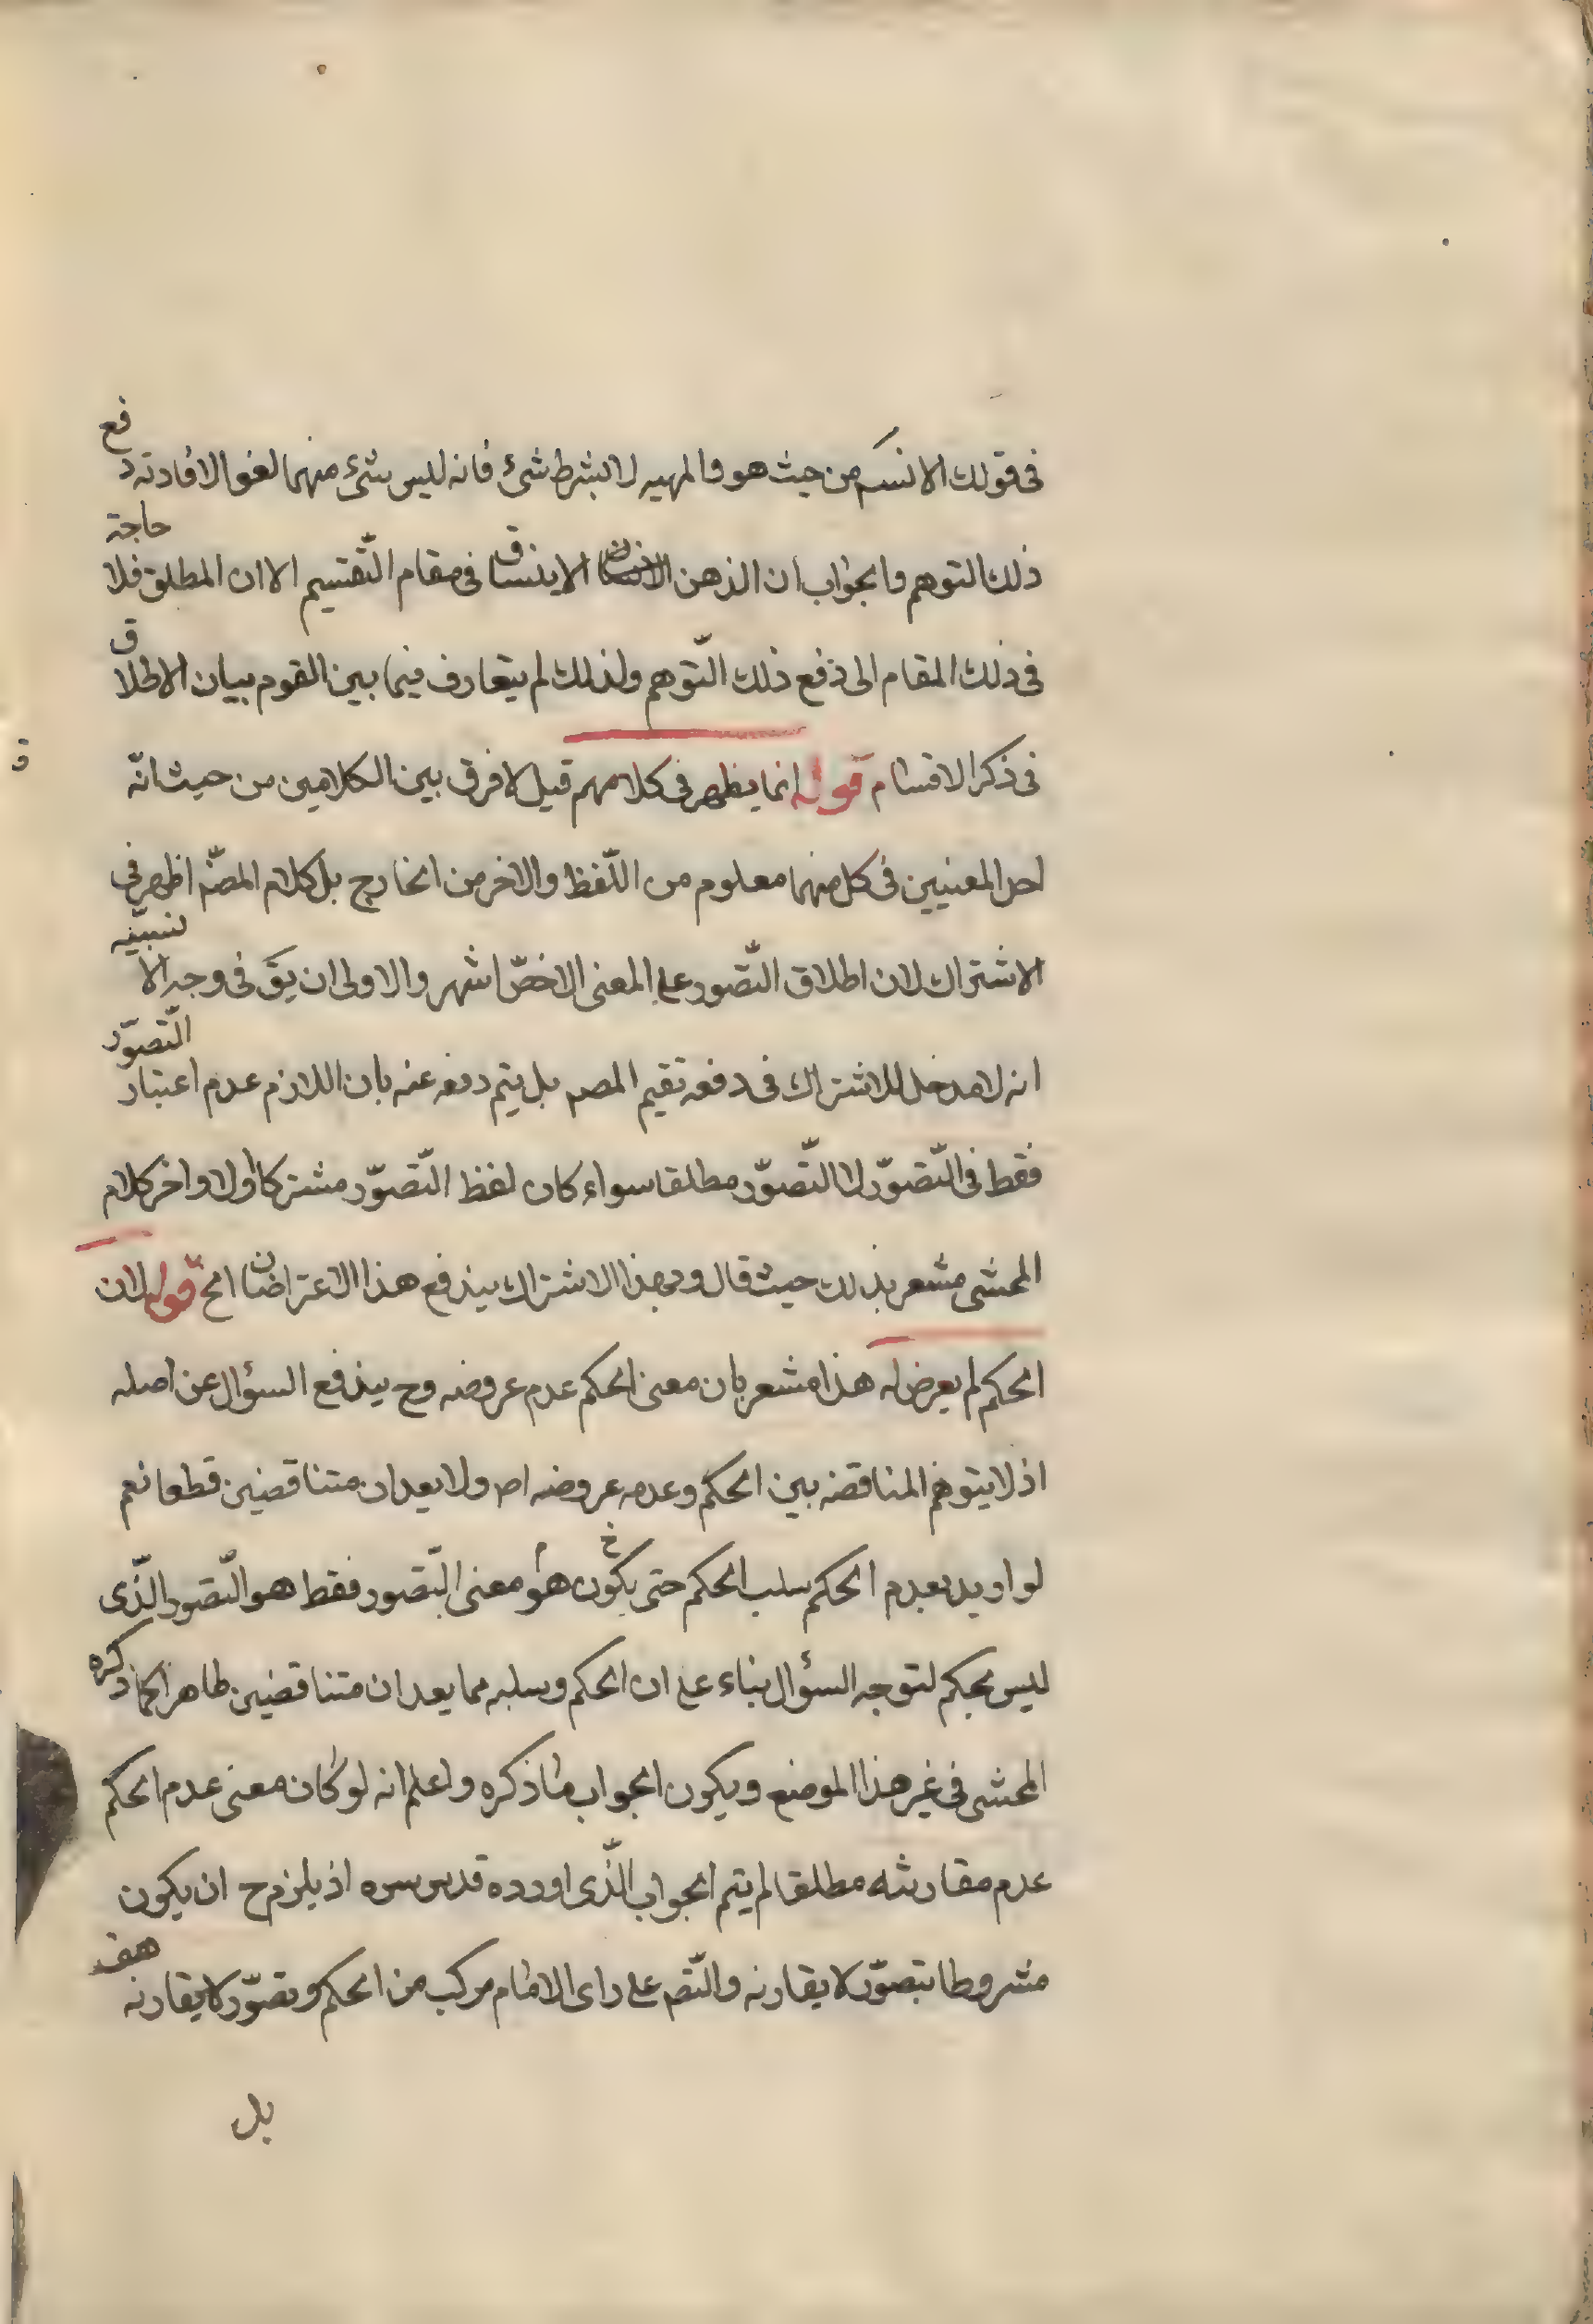 فى قولك الانسان من حيث هو والمهيه لا بشرط شئ فانه ليس بشئ منهما لغوا لافادته دفع
ذلك التوهم والجواب ان الذهن لا ينساق فى مقام التّقسيم الا ان المطلق فلا حاجة
فى ذلك المقام الى دفع ذلك التّوهم ولذلك لم يتعارف فيما بين القوم بيان الاطلاق
فى ذكر الاقسام قوله انما يظهر فى كلامهم قيل لا فرق بين الكلامين من حيث انّه
احد المعنيين فى كل منهما معلوم من اللّفظ والاخر من الخارج بل كلام المصّ اظهر فى
الاشتراك لان اطلاق التّصور على المعنى الاخصّ اشهر والاولى ان يقَ فى وجه الا
انه لا مدخل للاشتراك فى دفعه تقيم المصـ بل يتم دفعه عنه بان اللازم عدم اعتبار التّصوّر
فقط فى التّصوّر لا التّصوّر مطلقا سواء كان لفظ التّصوّر مشتركا اولا واخر كلام
المحشى مشعر بذلك حيث قال وبهذا الاشتراك يندفع هذا الاعتراضان الخ قوله لان
الحكم لم يعرض له هذا مشعر بان معنى الحكم عدم عروضه وح يندفع السؤال عن اصله
اذ لا يتوهم المناقضه بين الحكم وعدمه عروضه اصـ ولا يعدان متناقضين قطعا نعم
لو اريد بعدم الحكم سلب الحكم حتى يكون معنى التّصور فقط هو التّصور الّذى
ليس بحكم لتوجه السؤال بناء على ان الحكم وسلبه مما يعدان متناقضين ظاهرا كما ذكره
المحشى فى غير هذا الموضع ويكون الجواب ما ذكره واعلم انه لو كان معنى عدم الحكم
عدم مقارنته مطلقا لم يتم الجواب الّذى اورده قدس سره اذ يلزم ح ان يكون
مشروطا بتصوّر لا يقارنه والتّصـ على راى الامام مركب من الحكم وتصوّر لا يقارنه هف
بل